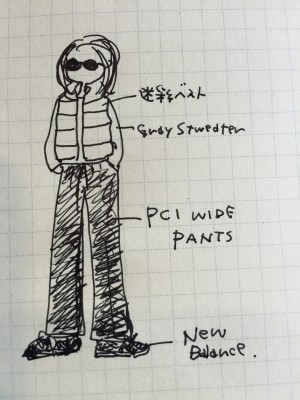 迷彩ベスト
Gray Stwedter
PCI WIDE
PANTS
New
Balance.